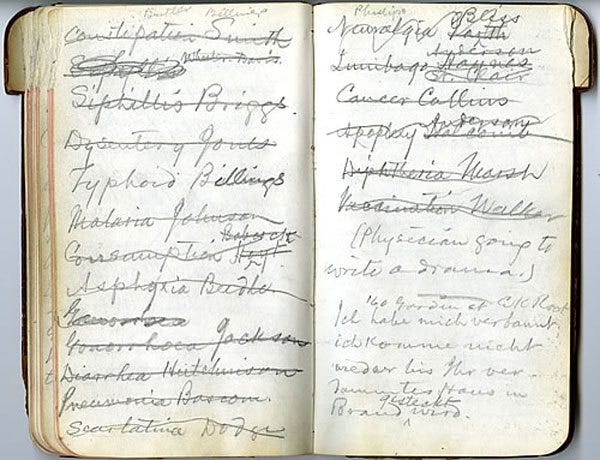 Butler Billings
Constipation Smith
Wheeler
Siphillis Briggs.
Dysentery Jones
Typhoid Billings
Malaria Johnson
Babcock
Consumption Hoyt
Asphyxia Beadle
Gonorrhoea Jackson
Diarrhea Hutchinson
Pneumonia Bascom.
Scarlatina Dodge
Phillips
Bliss
Neuralgia
Anderson
Lumbago Haynes
St. Clair
Cancer Collins
Anderson
Apoplexy Holcomb
Diphtheria Marsh
Vaccination Walker
(Physician going to
write a drama.)
Ich habe mich verbannt.
ich komme nicht
wieder bis Ihr ver-
dammtes Haus in
gesteckt
Brand wird.